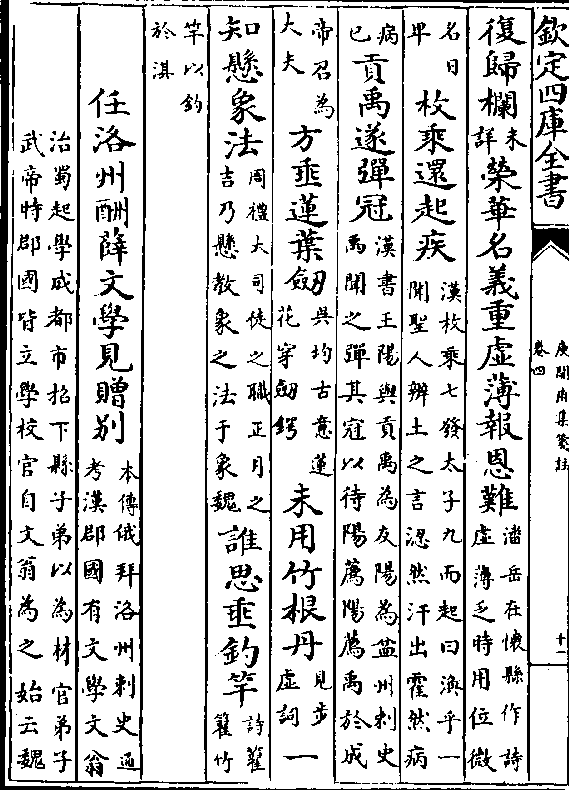 欽定四庫全書
庾開府集箋註
卷四
十一
復歸欄未詳榮華名義重虛薄報恩難潘岳在懷縣作詩虛薄乏時用位微
名日卑枚乘還起疾漢枚乘七發太子九而起曰渙乎一聞聖人辨士之言涊然汗出霍然病
病已貢禹遂彈冠漢書王陽與貢禹為友陽為益州刺史禹聞之彈其冠以待陽薦陽薦禹於成
帝召為大夫方垂蓮葉劒吳均古意蓮花穿劒鍔未用竹根丹見步虛詞一
知懸象法周禮大司徒之職正月之吉乃懸教象之法于象魏誰思垂釣竿詩籊籊竹
竿以釣於淇
任洛州酬薛文學見贈别本傳俄拜洛州刺史通考漢郡國有文學文翁
治蜀起學成都市招下縣子弟以為材官弟子武帝特郡國皆立學校官自文翁為之始云魏